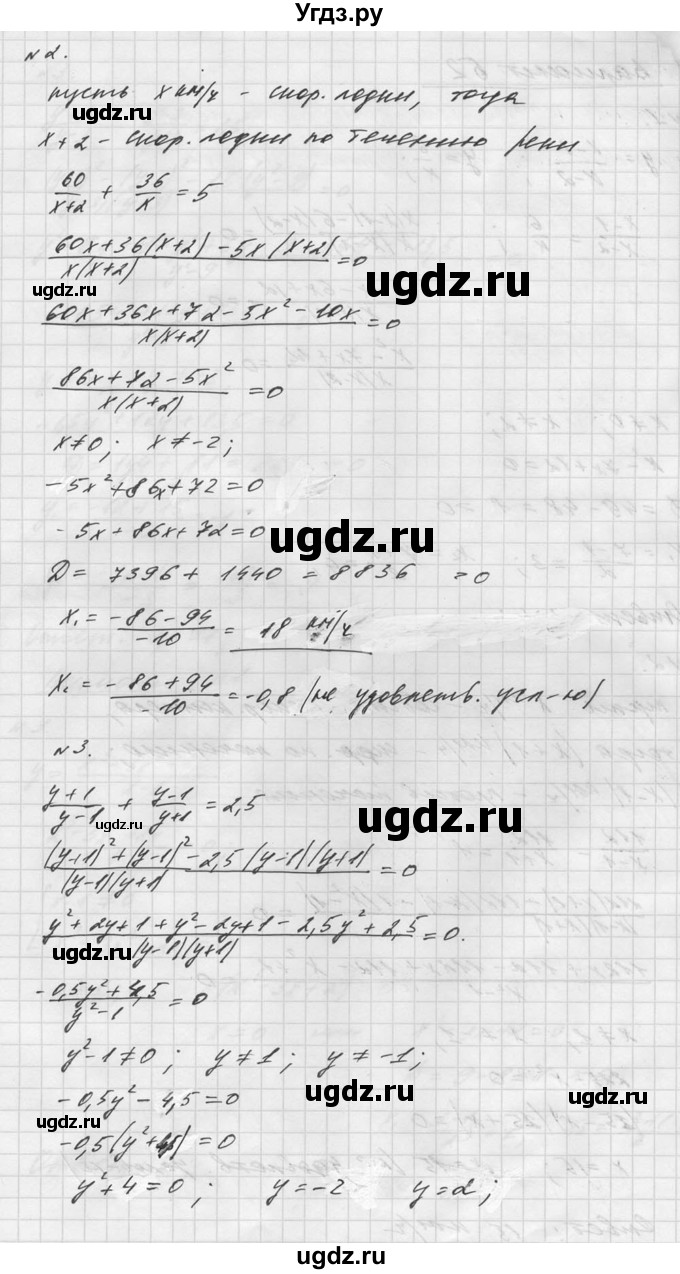 Угдз.ру
№2.
пусть x км/ч - скор. лодки, тогда
x+2 - скор. лодки по течению реки
60/(x+2) + 36/x = 5
(60x+36(x+2) - 5x(x+2))/(x(x+2)) = 0
ugdz.ru
ugdz.ru
(60x+36x+72-5x²-10x)/(x(x+2)) = 0
(86x+72-5x²)/(x(x+2)) = 0
ugdz.ru
x≠0; x≠-2;
-5x²+86x+72=0
-5x+86x+72=0
ugdz.ru
D = 7396+1440 = 8836 =0
x₁ = (-86-94)/(-10) = 18 км/ч
x₂ = (-86+94)/(-10) = -0,8 (не удовлетв. усл-ю)
ugdz.ru
№3.
(y+1)/(y-1) + (y-1)/(y+1) = 2,5
ugdz.ru
ugdz.ru
((y+1)²+(y-1)²-2,5(y-1)(y+1))/((y-1)(y+1)) = 0
(y²+2y+1+y²-2y+1-2,5y²+2,5)/((y-1)(y+1)) = 0.
ugdz.ru
(-0,5y²+4,5)/(y²-1) = 0
y²-1≠0; y≠1; y≠-1;
ugdz.ru
ugdz.ru
-0,5y²-4,5=0
ugdz.ru
-0,5(y²+ ) = 0
y²+4=0; y=-2 y=2;
ugdz.ru